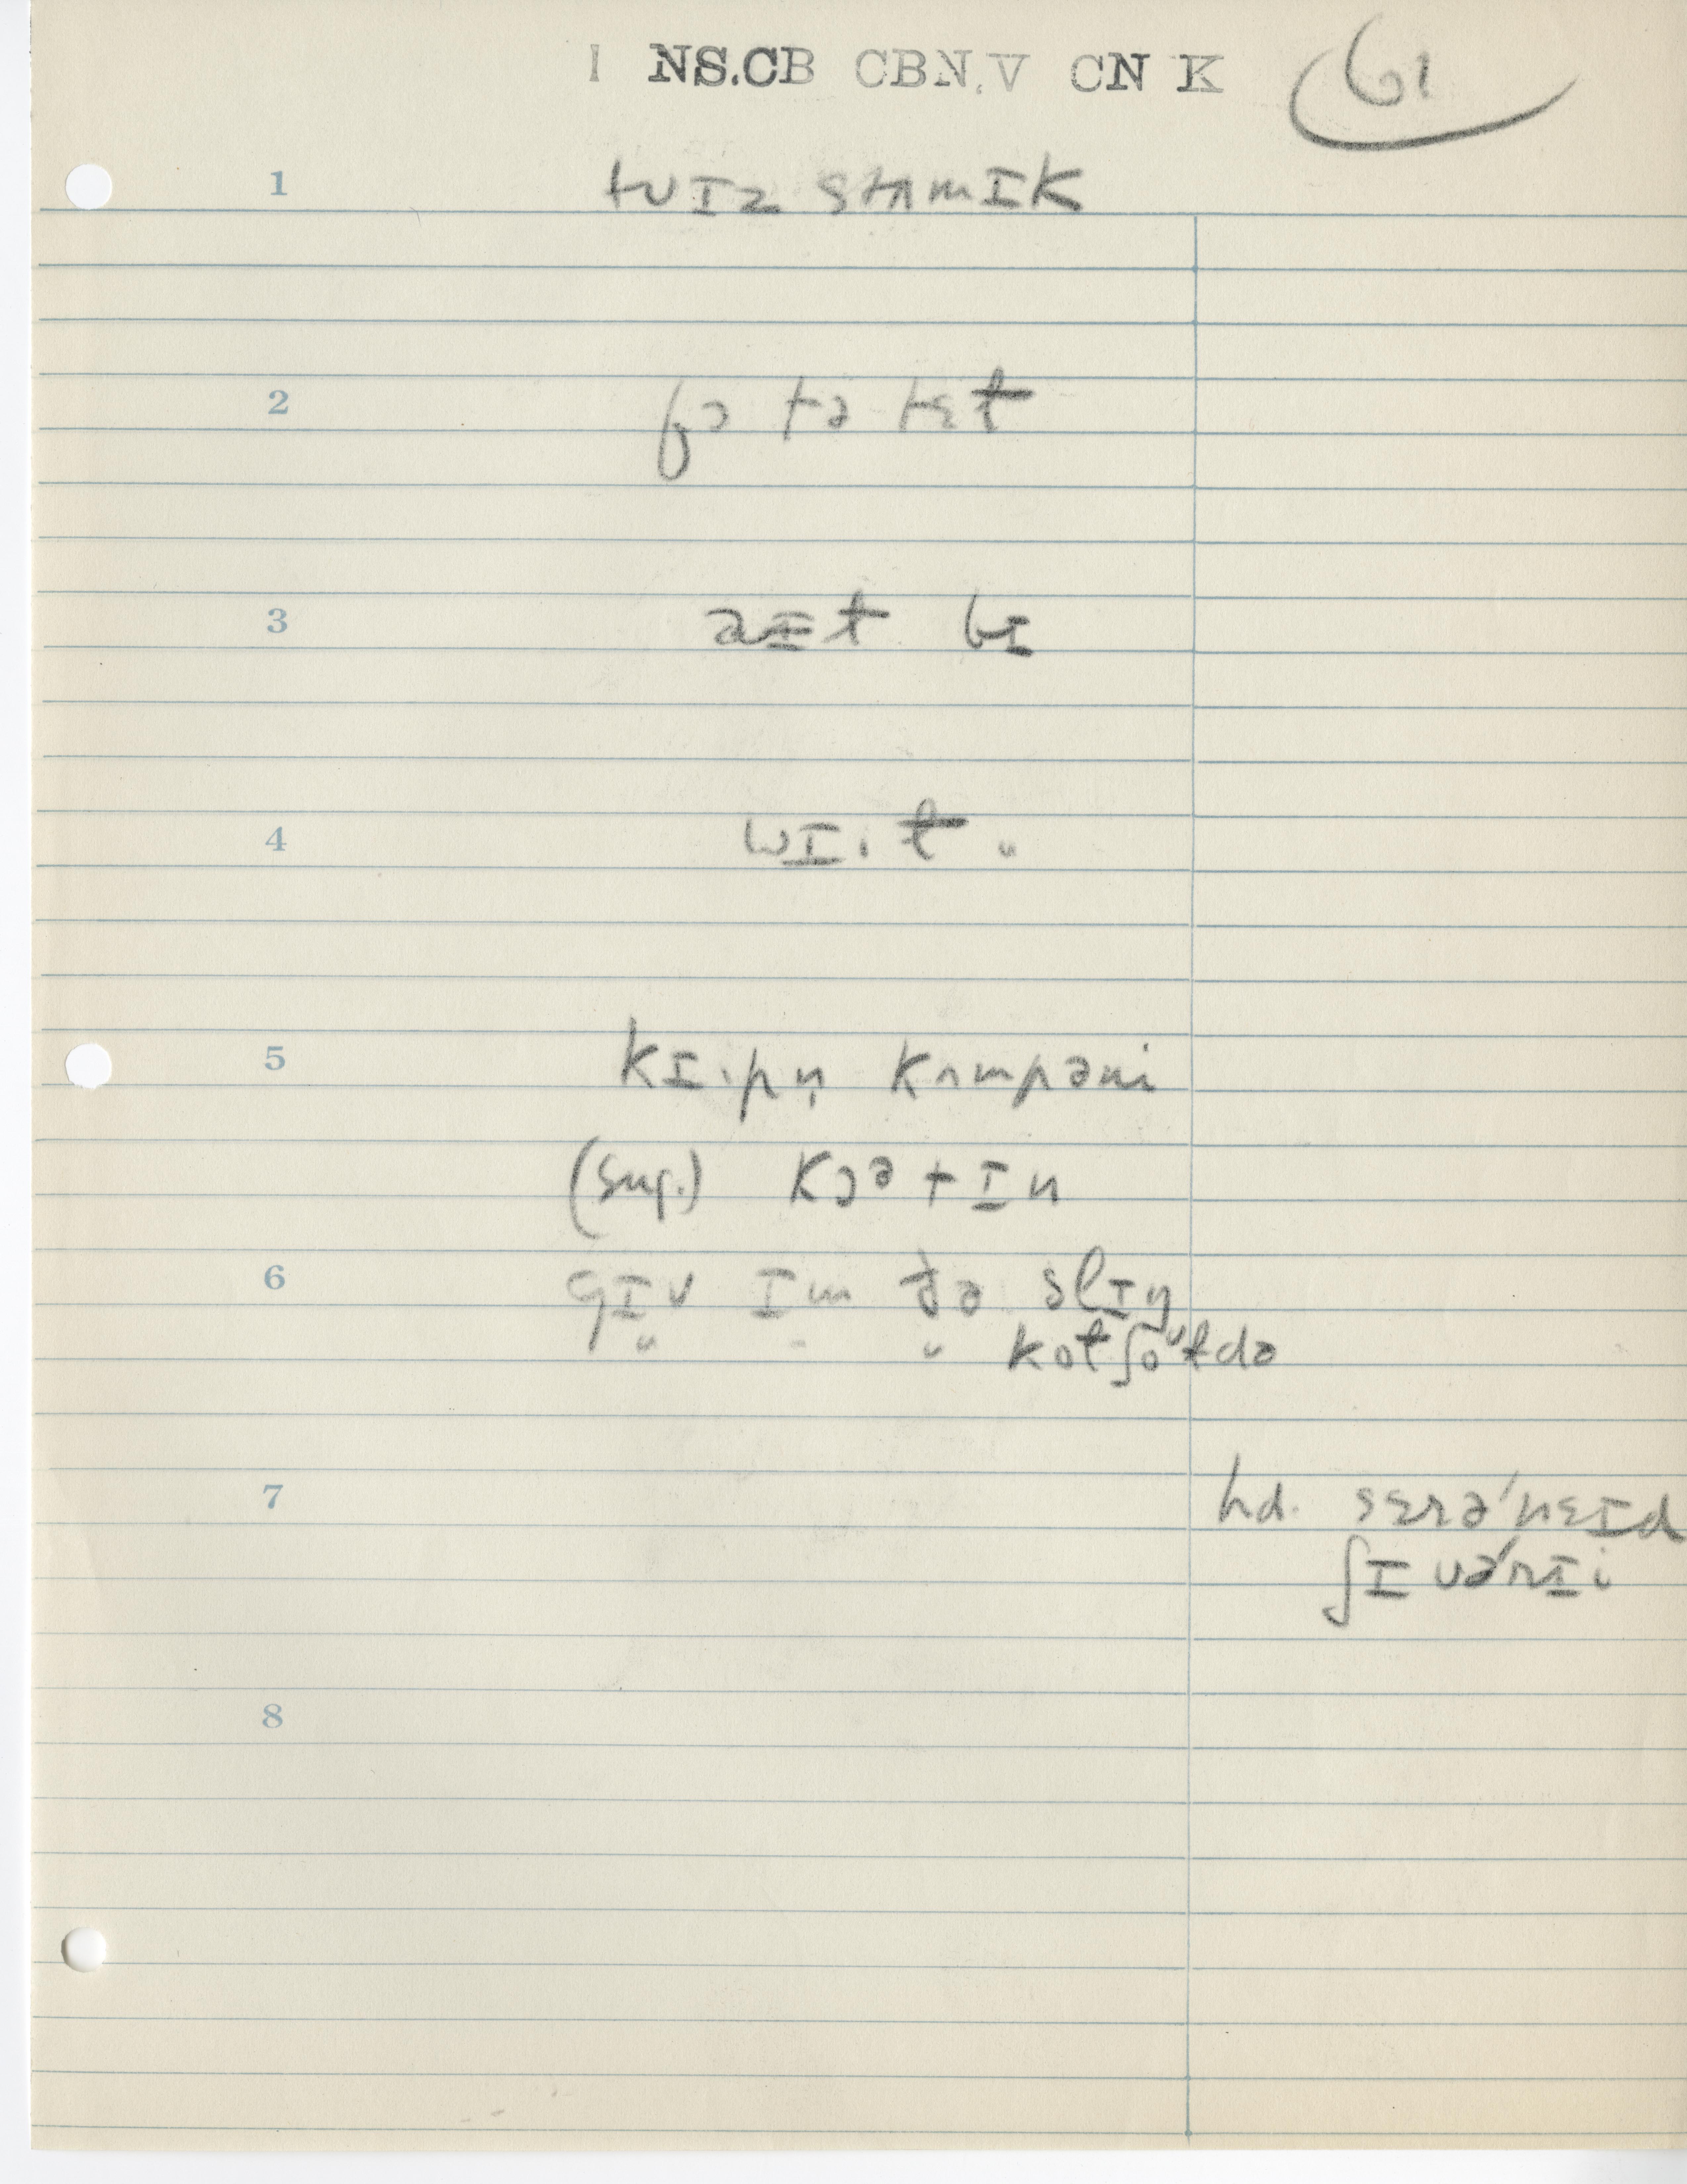 I NS.CB CBN.V CN K 61
1 tʊ ɪz stʌmɪk
2 fɔ tə tɛt
3 aɪt bɪ
4 wɪ.t "
5 kɪ.pn̩ kʌmpəni
(sug.) kɔətɪn
6 gɪv ɪm ðə slɪŋ
" " " kotʃoʊldə
7 hd. sɛrə'nɛɪd
ʃɪvə'rɪi
8